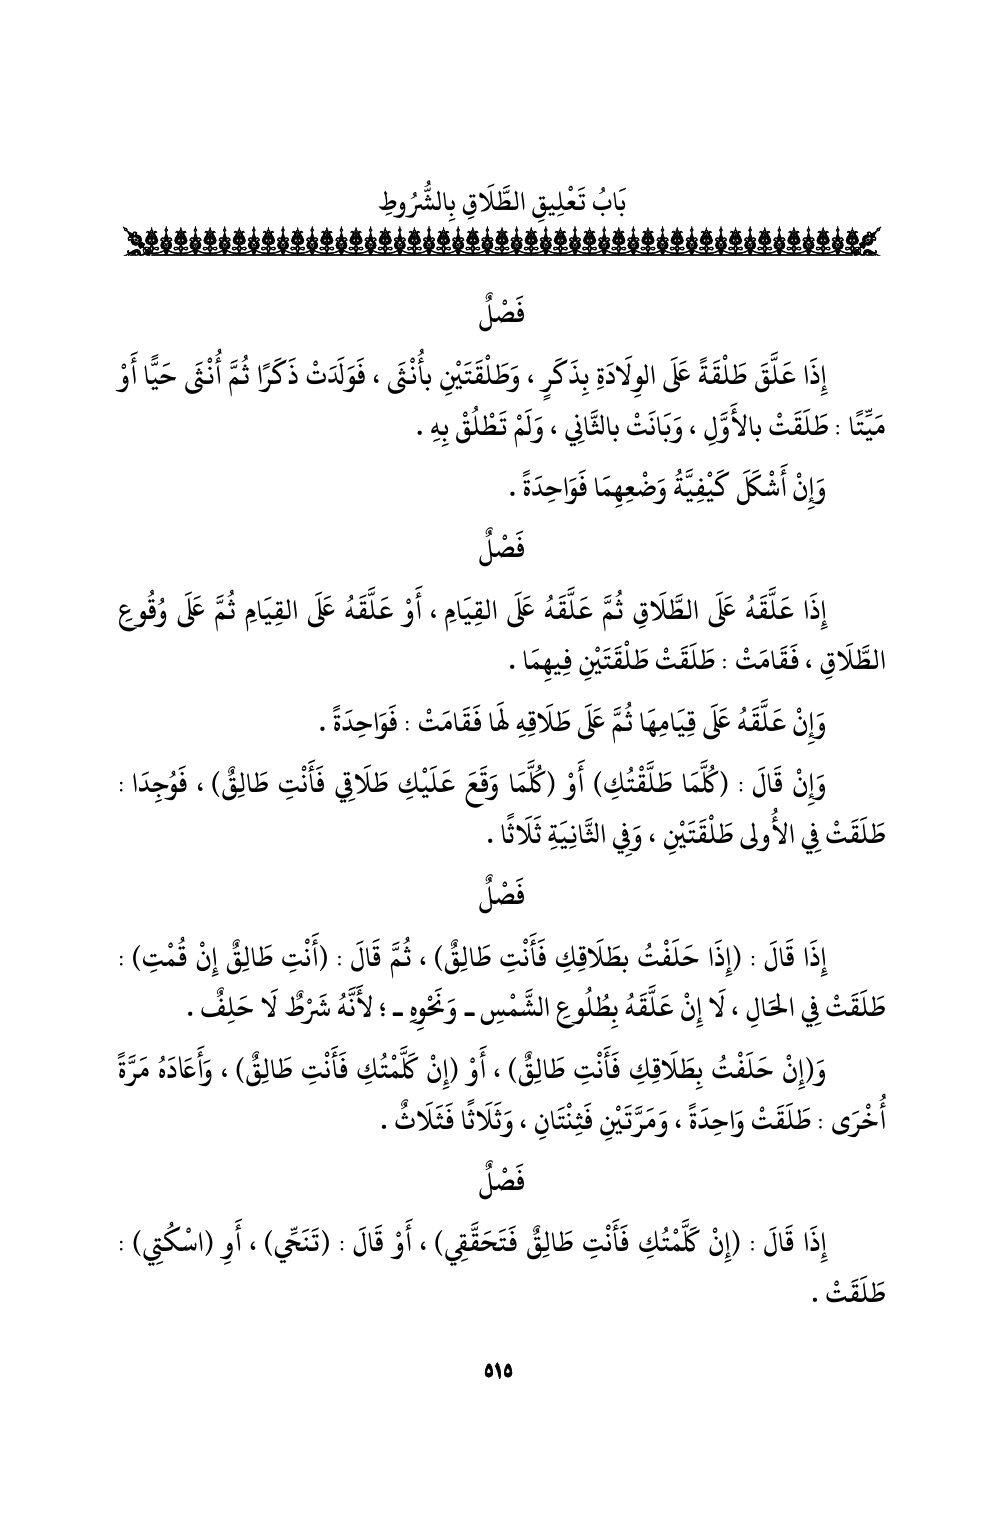 بَابُ تَعْلِيقِ الطَّلَاقِ بِالشُّرُوطِ
فَصْلٌ
إِذَا عَلَّقَ طَلْقَةً عَلَى الوِلَادَةِ بِذَكَرٍ ، وَطَلْقَتَيْنِ بأُنْثَى ، فَوَلَدَتْ ذَكَرًا ثُمَّ أُنْثَى حَيًّا أَوْ
مَيِّتًا : طَلَقَتْ بالأَوَّلِ ، وَبَانَتْ بالثَّانِي ، وَلَمْ تَطْلُقْ بِهِ .
وَإِنْ أَشْكَلَ كَيْفِيَّةُ وَضْعِهِمَا فَوَاحِدَةً .
فَصْلٌ
إِذَا عَلَّقَهُ عَلَى الطَّلَاقِ ثُمَّ عَلَّقَهُ عَلَى القِيَامِ ، أَوْ عَلَّقَهُ عَلَى القِيَامِ ثُمَّ عَلَى وُقُوعِ
الطَّلَاقِ ، فَقَامَتْ : طَلَقَتْ طَلْقَتَيْنِ فِيهِمَا .
وَإِنْ عَلَّقَهُ عَلَى قِيَامِهَا ثُمَّ عَلَى طَلَاقِهِ لَهَا فَقَامَتْ : فَوَاحِدَةً .
وَإِنْ قَالَ : (كُلَّمَا طَلَّقْتُكِ) أَوْ (كُلَّمَا وَقَعَ عَلَيْكِ طَلَاقِي فَأَنْتِ طَالِقٌ) ، فَوُجِدَا :
طَلَقَتْ فِي الأُولى طَلْقَتَيْنِ ، وَفِي الثَّانِيَةِ ثَلَاثًا .
فَصْلٌ
إِذَا قَالَ : (إِذَا حَلَفْتُ بطَلَاقِكِ فَأَنْتِ طَالِقٌ) ، ثُمَّ قَالَ : (أَنْتِ طَالِقٌ إِنْ قُمْتِ) :
طَلَقَتْ فِي الحَالِ ، لَا إِنْ عَلَّقَهُ بِطُلُوعِ الشَّمْسِ ـ وَنَحْوِهِ ـ ؛ لأَنَّهُ شَرْطٌ لَا حَلِفٌ .
وَ(إِنْ حَلَفْتُ بِطَلَاقِكِ فَأَنْتِ طَالِقٌ) ، أَوْ (إِنْ كَلَّمْتُكِ فَأَنْتِ طَالِقٌ) ، وَأَعَادَهُ مَرَّةً
أُخْرَى : طَلَقَتْ وَاحِدَةً ، وَمَرَّتَيْنِ فَثِنْتَانِ ، وَثَلَاثًا فَثَلَاثٌ .
فَصْلٌ
إِذَا قَالَ : (إِنْ كَلَّمْتُكِ فَأَنْتِ طَالِقٌ فَتَحَقَّقِي) ، أَوْ قَالَ : (تَنَحِّي) ، أَوِ (اسْكُتِي) :
طَلَقَتْ .
٥١٥